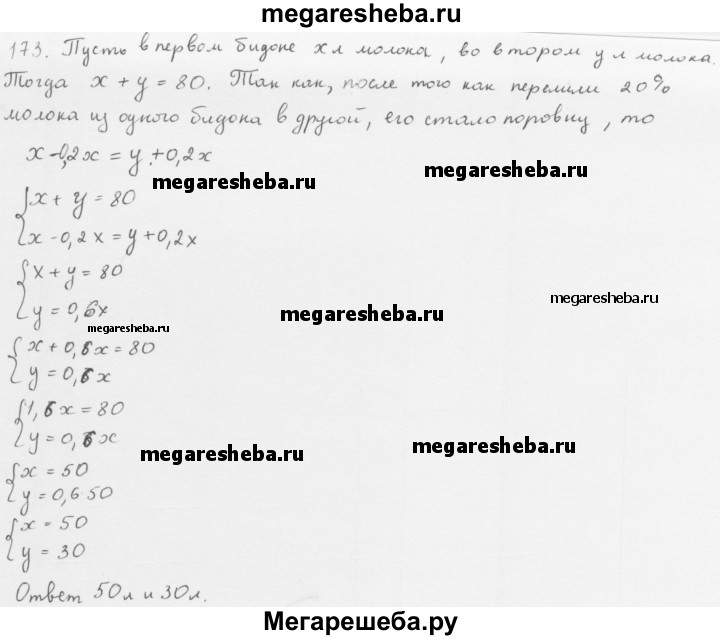 megaresheba.ru
173. Пусть в первом бидоне х л молока, во втором у л молока.
Тогда x + y = 80. Так как, после того как перелили 20%
молока из одного бидона в другой, его стало поровну, то
x - 0,2x = y + 0,2x
megaresheba.ru
megaresheba.ru
x + y = 80
x - 0,2x = y + 0,2x
x + y = 80
y = 0,6x
megaresheba.ru
megaresheba.ru
megaresheba.ru
x + 0,6x = 80
y = 0,6x
1,6x = 80
y = 0,6x
megaresheba.ru
megaresheba.ru
x = 50
y = 0,6 50
x = 50
y = 30
Ответ 50л и 30л.
Мегарешеба.ру